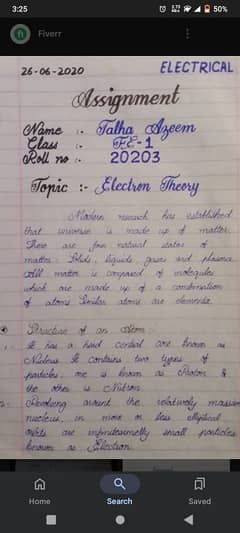 3:25
50%
Fiverr
26-06-2020 ELECTRICAL
Assignment
Name :- Talha Azeem
Class :- FE-1
Roll no :- 20203
Topic :- Electron Theory
Modern research has established
that universe is made up of matter.
There are four natural states of
matter: Solids, liquids, gases and plasma.
All matter is composed of molecules
which are made up of a combination
of atoms. Similar atoms are elements.
Structure of an Atom :-
1- It has a hard central core known as
Nucleus. It contains two types of
particles, one is known as Proton &
the other is Nutron.
2- Revolving around the relatively massive
nucleus, in more or less elliptical
orbits are infinitesimally small particles
known as Electron.
Home Search Saved